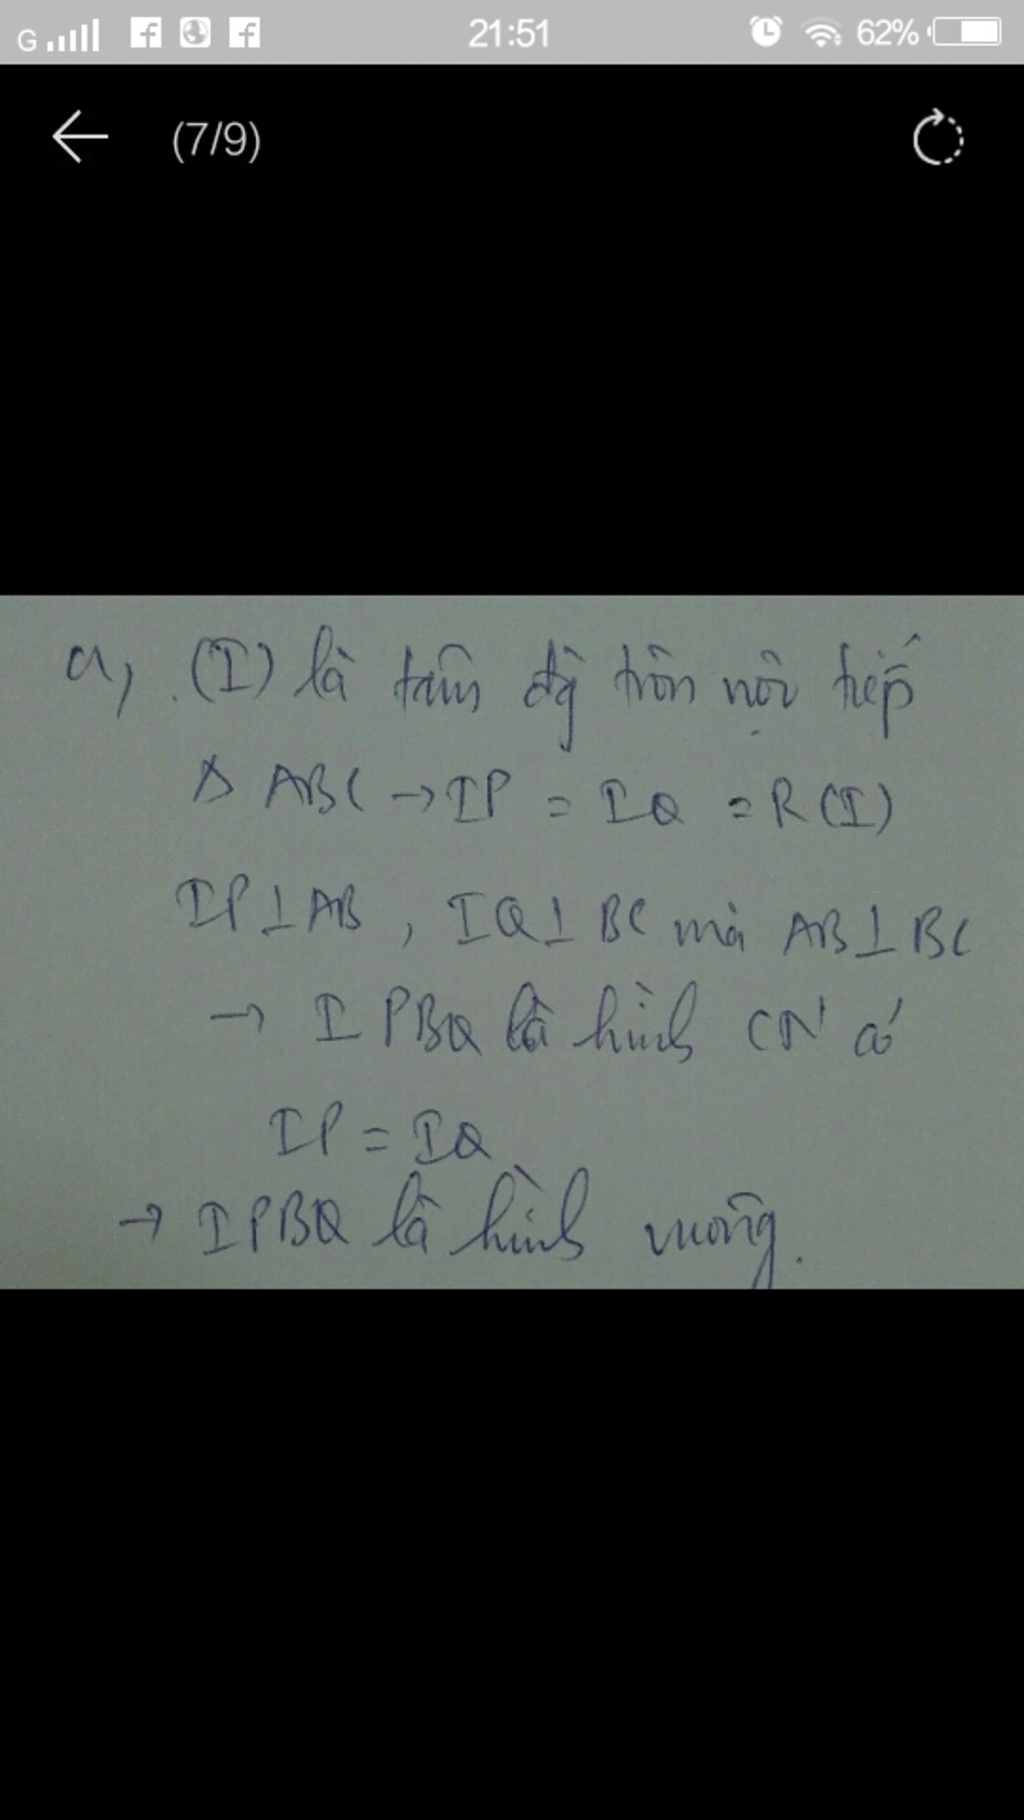 G 21:51 62%
(7/9)
a, (I) là tâm đg tròn nội tiếp
Δ ABC → IP = IQ = R(I)
IP⊥AB, IQ⊥BC mà AB⊥BC
→ IPBQ là hình CN có
IP = IQ
→ IPBQ là hình vuông.